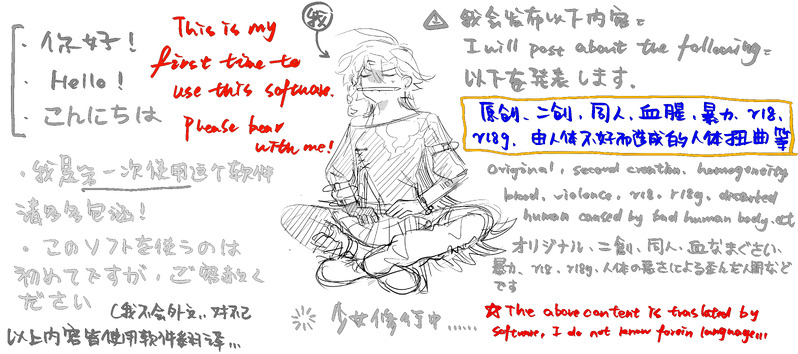 · 你好！
· Hello！
· こんにちは
This is my
first time to
use this software.
Please bear
with me!
我
· 我是第一次使用这个软件
请多多包涵！
· このソフトを使うのは
初めてですが、ご容赦く
ださい
（我不会外文，对不起
以上内容皆使用软件翻译...
少女修行中......
⚠ 我会发布以下内容：
I will post about the following:
以下を発表します.
原创、二创，同人，血腥，暴力、r18、
r18g，由人体不好而造成的人体扭曲等
Original, second creation, homogeneity
blood, violence, r18, r18g, distorted
human caused by bad human body.ect
オリジナル、二創、同人、血なまぐさい、
暴力、r18、r18g、人体の悪さによる歪んだ人間など
です
☆ The above content is traslated by
software, I do not know forein language...